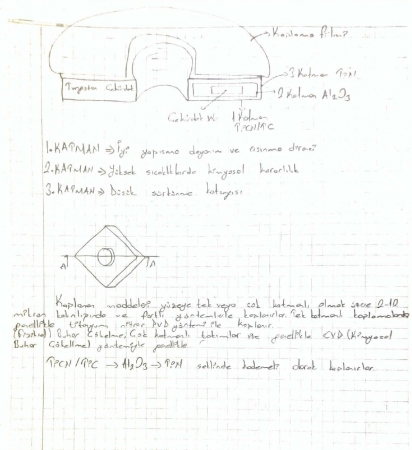 Kaplama Filmi
3. Katman TiN
Tungsten Çekirdek
2. Katman Al₂O₃
Çekirdek W.
1. Katman
TiCN/TiC
1. KATMAN → İyi yapışma dayanım ve aşınma direnci
2. KATMAN → Yüksek sıcaklıklarda kimyasal kararlılık
3. KATMAN → Düşük sürtünme katsayısı
A A
Kaplanan maddeler yüzeye tek veya çok katmanlı olmak üzere 2-10
mikron kalınlığında ve farklı yöntemlerle kaplanırlar. Tek katmanlı kaplamalarda
genellikle titanyum nitrür PVD yöntemi ile kaplanır.
(Fiziksel) Buhar Çökelme. Çok katmanlı takımlar ise genellikle CVD (Kimyasal
Buhar Çökeltme) yöntemiyle genellikle
TiCN/TiC → Al₂O₃ → TiN şeklinde kademeli olarak kaplanırlar.